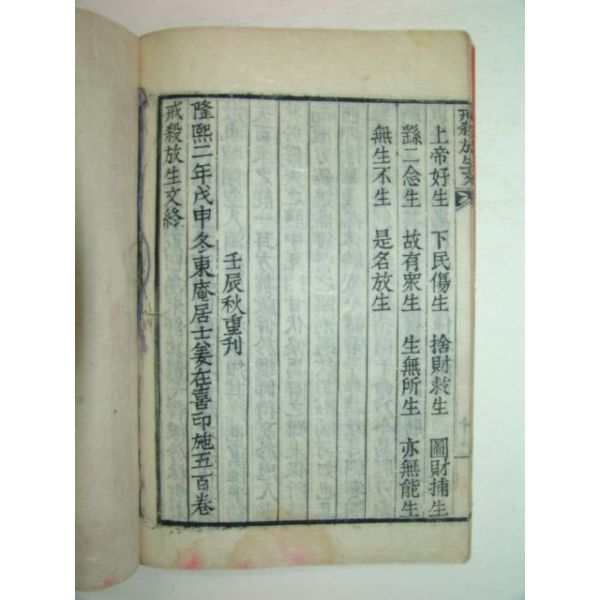 戒殺放生文
上帝好生 下民傷生 捨財救生 圖財捕生
繇二念生 故有衆生 生無所生 亦無能生
無生不生 是名放生
壬辰秋重刊
隆熙二年戊申冬東庵居士姜在喜印施五百卷
戒殺放生文終